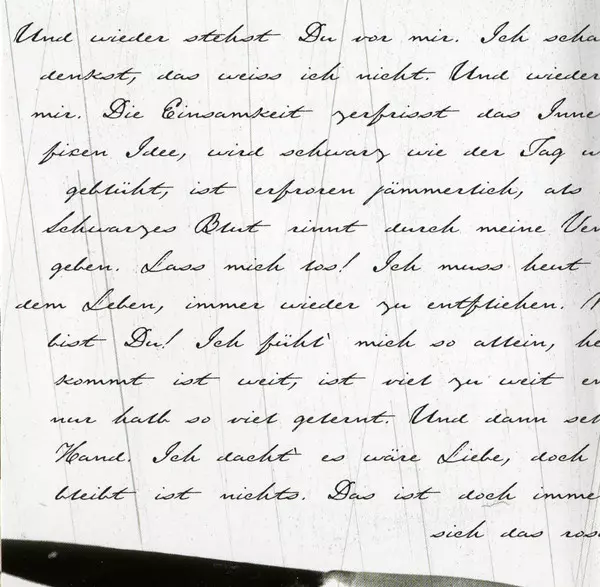 Und wieder stehst Du vor mir. Ich scha
denkst, das weiss ich nicht. Und wieder
mir. Die Einsamkeit zerfrisst das Inne
fixen Idee, wird schwarz wie der Tag w
geblüht, ist erfroren jämmerlich, als
Schwarzes Blut rinnt durch meine Ven
geben. Lass mich los! Ich muss heut
dem Leben, immer wieder zu entfliehen.
bist Du! Ich fühl' mich so allein, he
kommt ist weit, ist viel zu weit en
nur halb so viel gelernt. Und dann seh
Hand. Ich dacht' es wäre Liebe, doch
bleibt ist nichts. Das ist doch imme
sich das rose